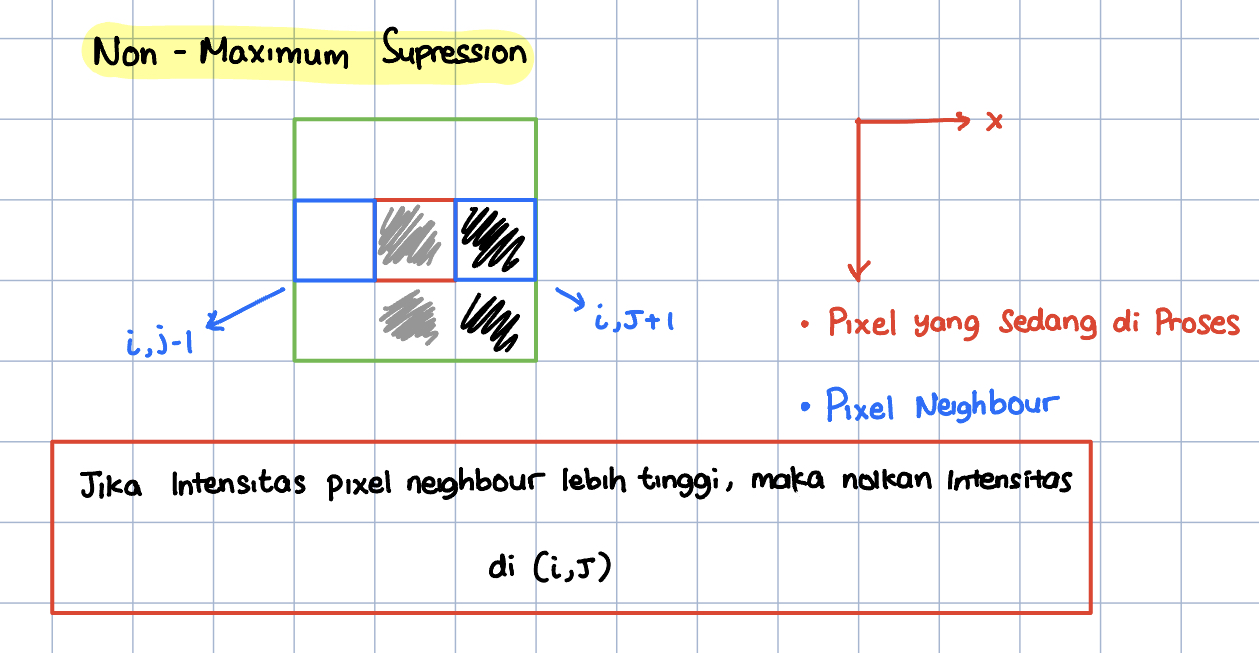 Non - Maximum Supression
x
i,j-1
i,J+1
• Pixel yang Sedang di Proses
• Pixel Neighbour
Jika Intensitas pixel neighbour lebih tinggi, maka nolkan Intensitas
di (i,J)